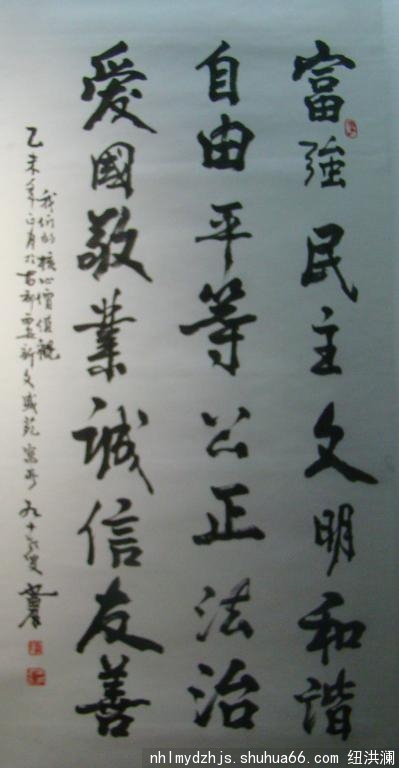 富強民主文明和谐
自由平等公正法治
愛國敬業誠信友善
我们的核心價值觀
乙未年正月於古都
nhlmydzhjs.shuhua66.com 纽洪澜